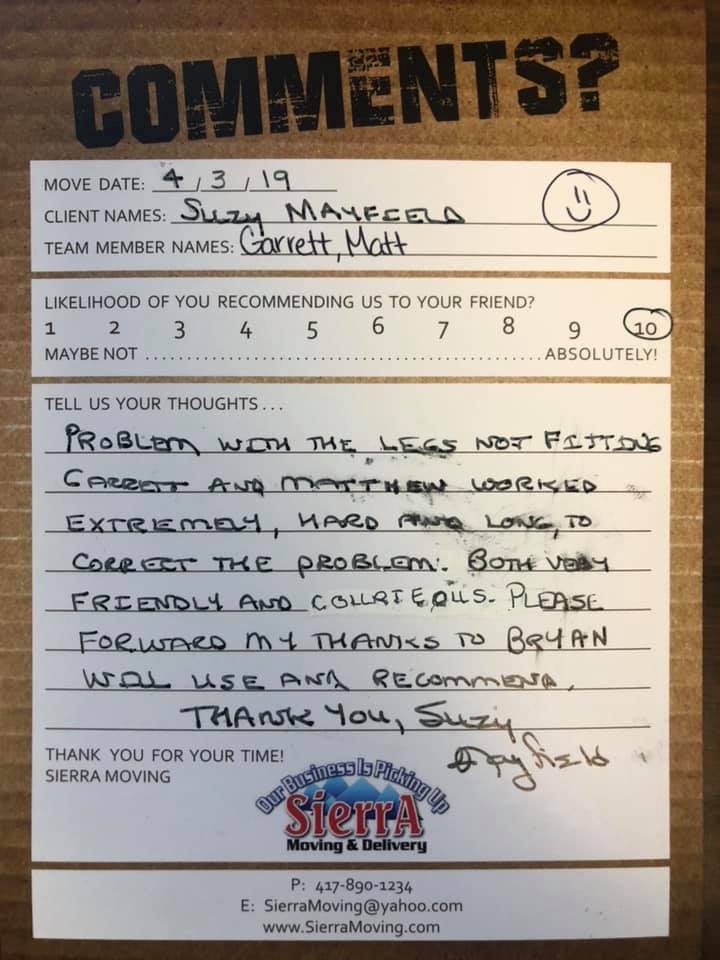 COMMENTS?
MOVE DATE: 4 / 3 / 19
CLIENT NAMES: SUZY MAYFIELD
TEAM MEMBER NAMES: Garrett, Matt
LIKELIHOOD OF YOU RECOMMENDING US TO YOUR FRIEND?
1 2 3 4 5 6 7 8 9 10
MAYBE NOT ........................................................ ABSOLUTELY!
TELL US YOUR THOUGHTS...
PROBLEM WITH THE LEGS NOT FITTING
GARRETT AND MATTHEW WORKED
EXTREMELY, HARD AND LONG, TO
CORRECT THE PROBLEM. BOTH VERY
FRIENDLY AND COURTEOUS. PLEASE
FORWARD MY THANKS TO BRYAN
WILL USE AND RECOMMEND.
THANK YOU, SUZY
Mayfield
THANK YOU FOR YOUR TIME!
SIERRA MOVING
Our Business Is Picking Up
SierrA
Moving & Delivery
P: 417-890-1234
E: SierraMoving@yahoo.com
www.SierraMoving.com